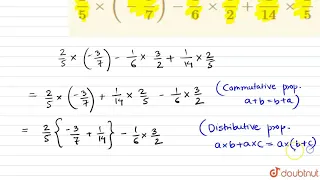 5 × ( - 7 ) - 6 × 2 + 14 × 5
2/5 × (-3/7) - 1/6 × 3/2 + 1/14 × 2/5
= 2/5 × (-3/7) + 1/14 × 2/5 - 1/6 × 3/2 (Commutative prop. a+b = b+a)
= 2/5 { -3/7 + 1/14 } - 1/6 × 3/2 (Distributive prop. a×b + a×c = a×(b+c)
doubtnut